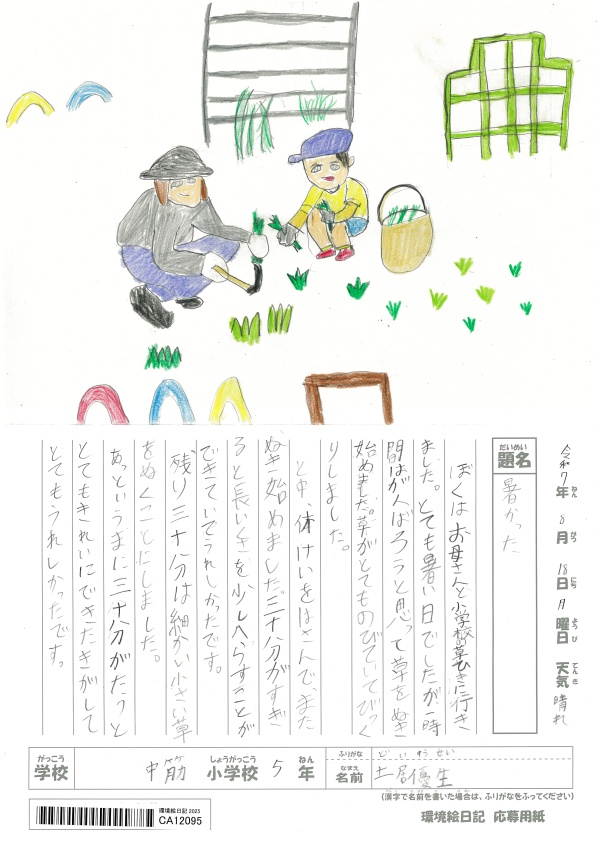 令和7年 8月 18日 月曜日 天気 晴れ
ねん がつ にち ようび てんき
だいめい
題名
暑かった
ぼくはお母さんと小学校草ひきに行き
ました。とても暑い日でしたが一時
間はがんばろうと思って草をぬき
始めました。草がとてものびていてびっく
りしました。
と中、休けいをはさんで、また
ぬき始めました。三十分がすぎ
ると長いくきを少しへらすことが
できていてうれしかったです。
残り三十分は細かい小さい草
をぬくことにしました。
あっというまに三十分がたっと
とてもきれいにできたきがして
とてもうれしかったです。
がっこう しょうがっこう ねん
学校 中筋 小学校 5年
ふりがな どいゆうせい
なまえ
名前 土居優生
(漢字で名前を書いた場合は、ふりがなをふってください)
環境絵日記 2025
CA12095
環境絵日記 応募用紙